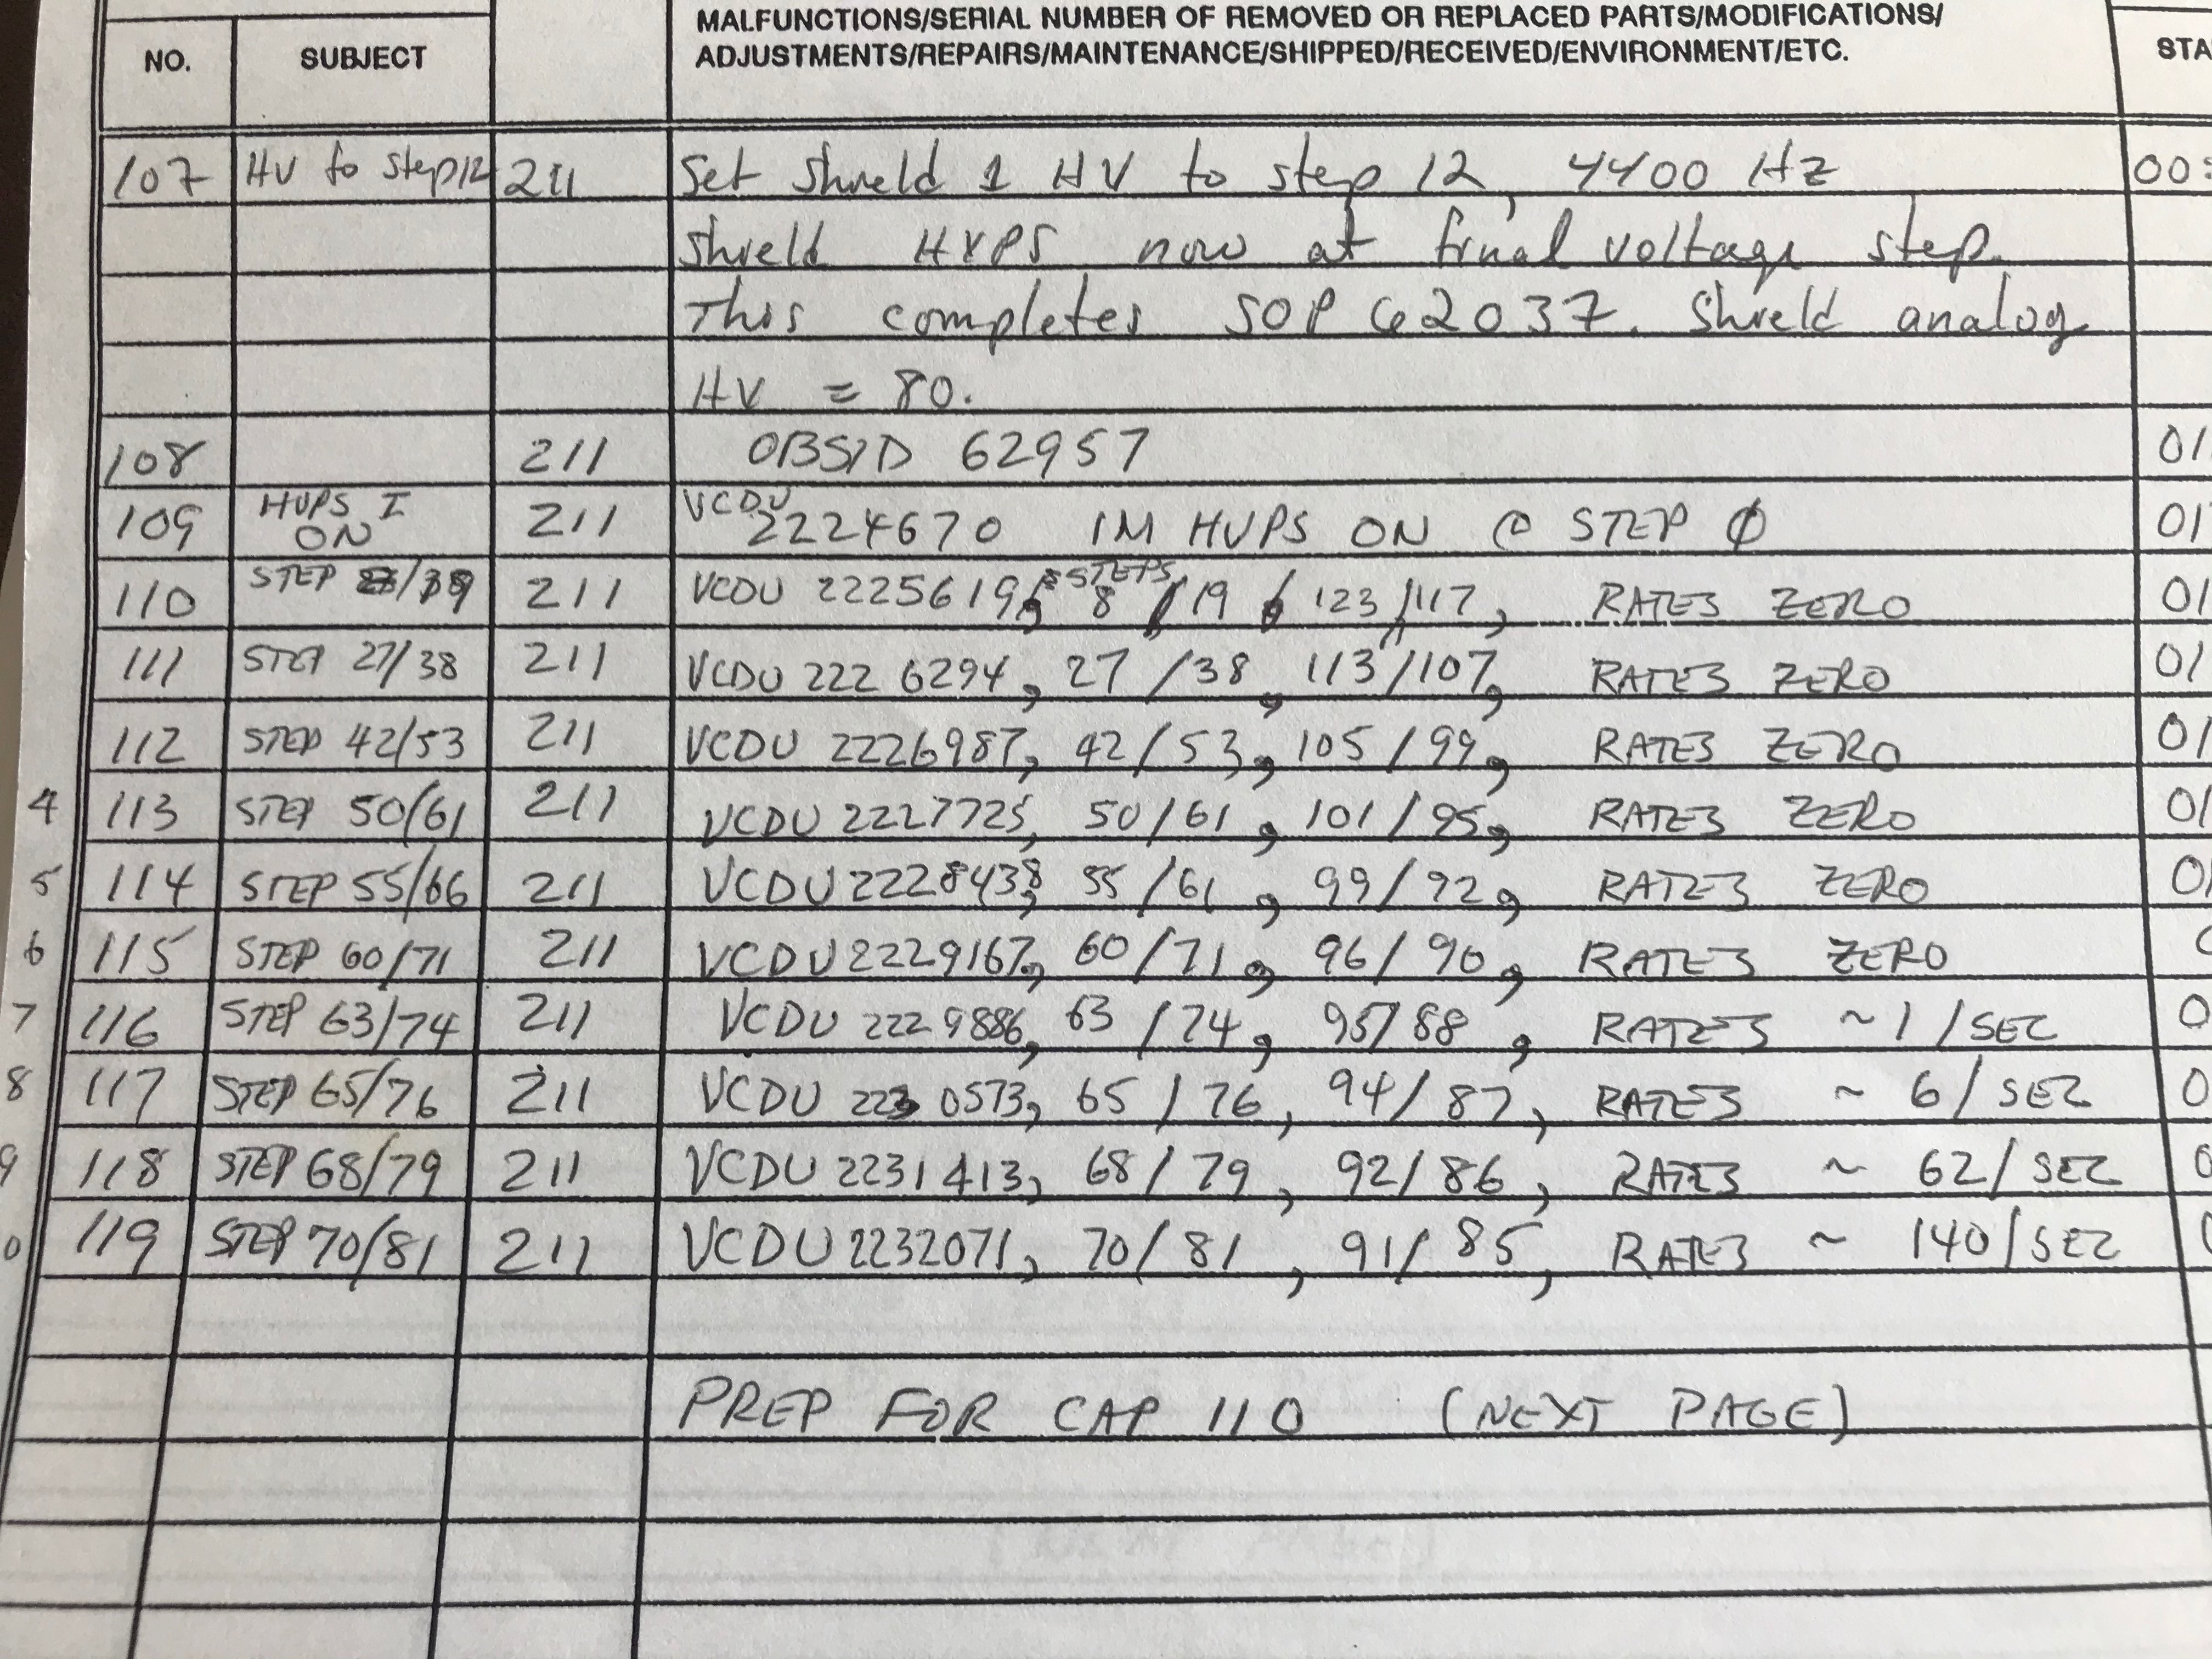 MALFUNCTIONS/SERIAL NUMBER OF REMOVED OR REPLACED PARTS/MODIFICATIONS/
NO. SUBJECT ADJUSTMENTS/REPAIRS/MAINTENANCE/SHIPPED/RECEIVED/ENVIRONMENT/ETC. STA
107 HV to step 12 211 Set Shield 1 HV to step 12, 4400 Hz 00:
Shield HVPS now at final voltage step.
This completes SOP 62037. Shield analog
HV = 80.
108 211 OBSID 62957 01
109 HVPS I ON 211 VCDU 2224670 IM HVPS ON @ STEP Ø 01
110 STEP 211 VCDU 2225619, STEPS 8/19 123/117, RATES ZERO 01
111 STEP 27/38 211 VCDU 2226294, 27/38, 113/107, RATES ZERO 01
112 STEP 42/53 211 VCDU 2226987, 42/53, 105/99, RATES ZERO 01
4 113 STEP 50/61 211 VCDU 2227725, 50/61, 101/95, RATES ZERO 01
5 114 STEP 55/66 211 VCDU 2228438, 55/61, 99/92, RATES ZERO 0
6 115 STEP 60/71 211 VCDU 2229167, 60/71, 96/90, RATES ZERO
7 116 STEP 63/74 211 VCDU 2229886, 63/74, 95/88, RATES ~1/SEC 0
8 117 STEP 65/76 211 VCDU 2230573, 65/76, 94/87, RATES ~ 6/SEC 0
9 118 STEP 68/79 211 VCDU 2231413, 68/79, 92/86, RATES ~ 62/SEC 0
0 119 STEP 70/81 211 VCDU 2232071, 70/81, 91/85, RATES ~ 140/SEC
PREP FOR CAP 110 (NEXT PAGE)